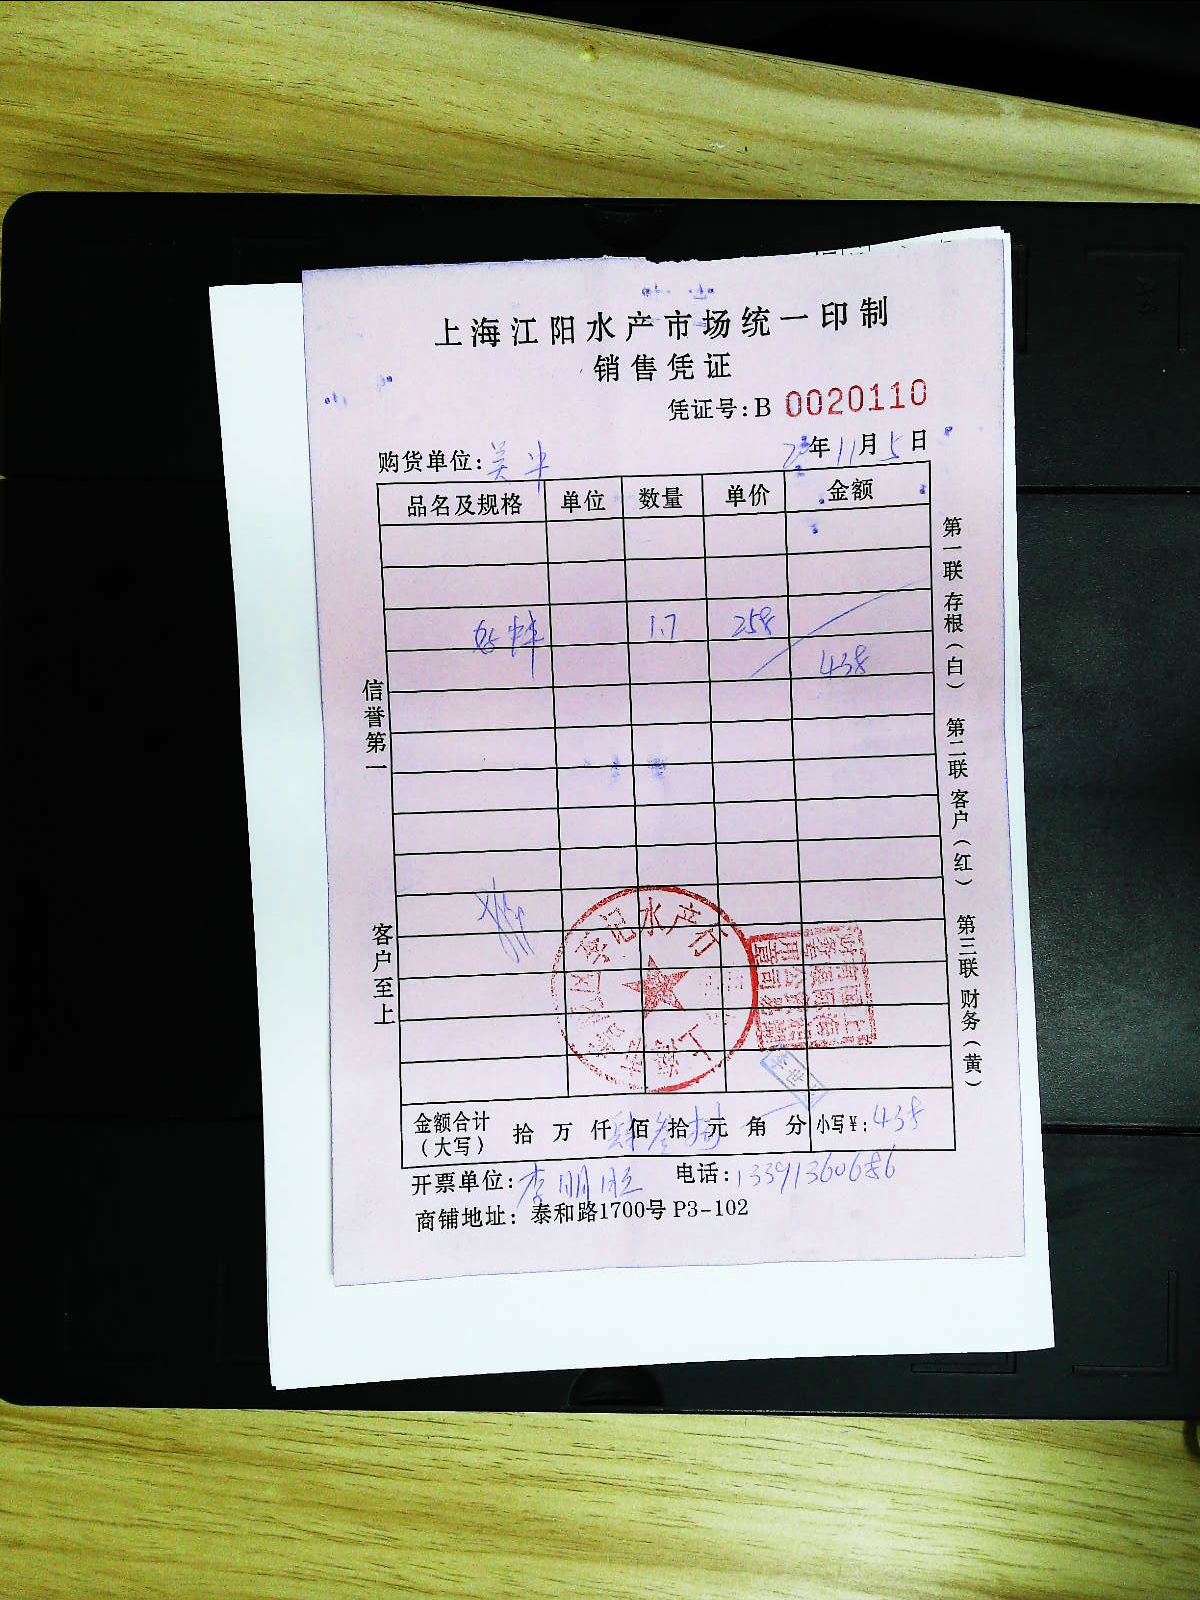 上海江阳水产市场统一印制
销售凭证
凭证号:B 0020110
购货单位: 年 11 月 5 日
品名及规格 单位 数量 单价 金额
1.7 258
438
金额合计(大写) 拾 万 仟 肆佰 叁拾 元 角 分 小写¥: 438
开票单位: 李朋胜 电话: 13391360686
商铺地址: 泰和路1700号 P3-102
信誉第一 客户至上
第一联 存根(白) 第二联 客户(红) 第三联 财务(黄)
记水产行